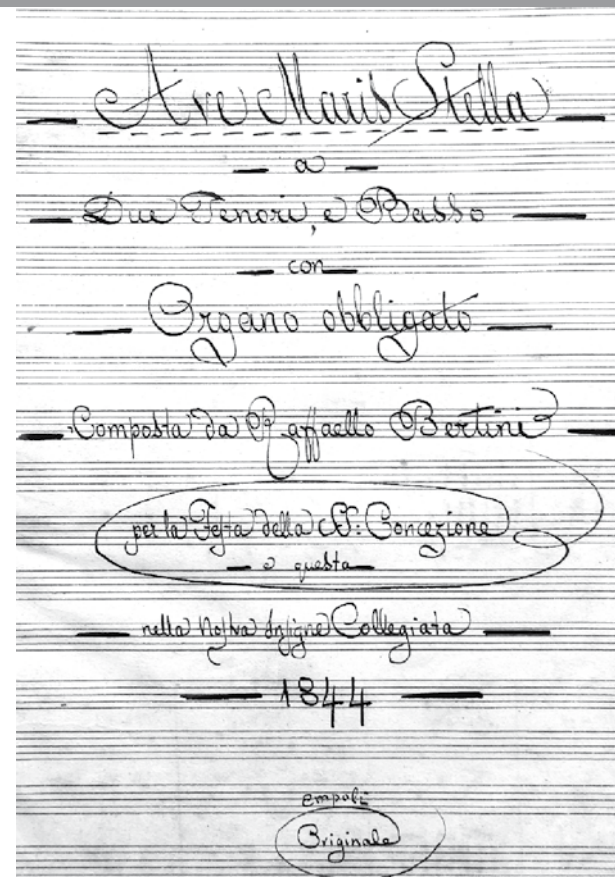 Ave Maris Stella
a
Due Tenori, e Basso
con
Organo obbligato
Composta da Raffaello Bertini
per la Festa della SS: Concezione
e questa
nella Nostra Insigne Collegiata
1844
Empoli
Originale